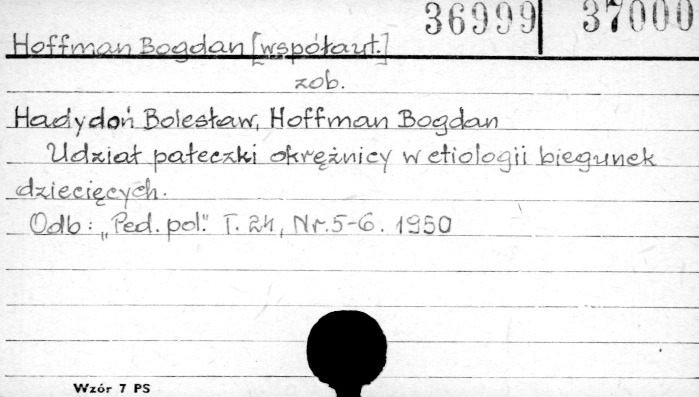 36999 37000
Hoffman Bogdan [współaut.]
zob.
Hadydoń Bolesław, Hoffman Bogdan
Udział pałeczki okrężnicy w etiologii biegunek
dziecięcych.
Odb: „Ped. pol." T. 24, Nr. 5-6. 1950
Wzór 7 PS